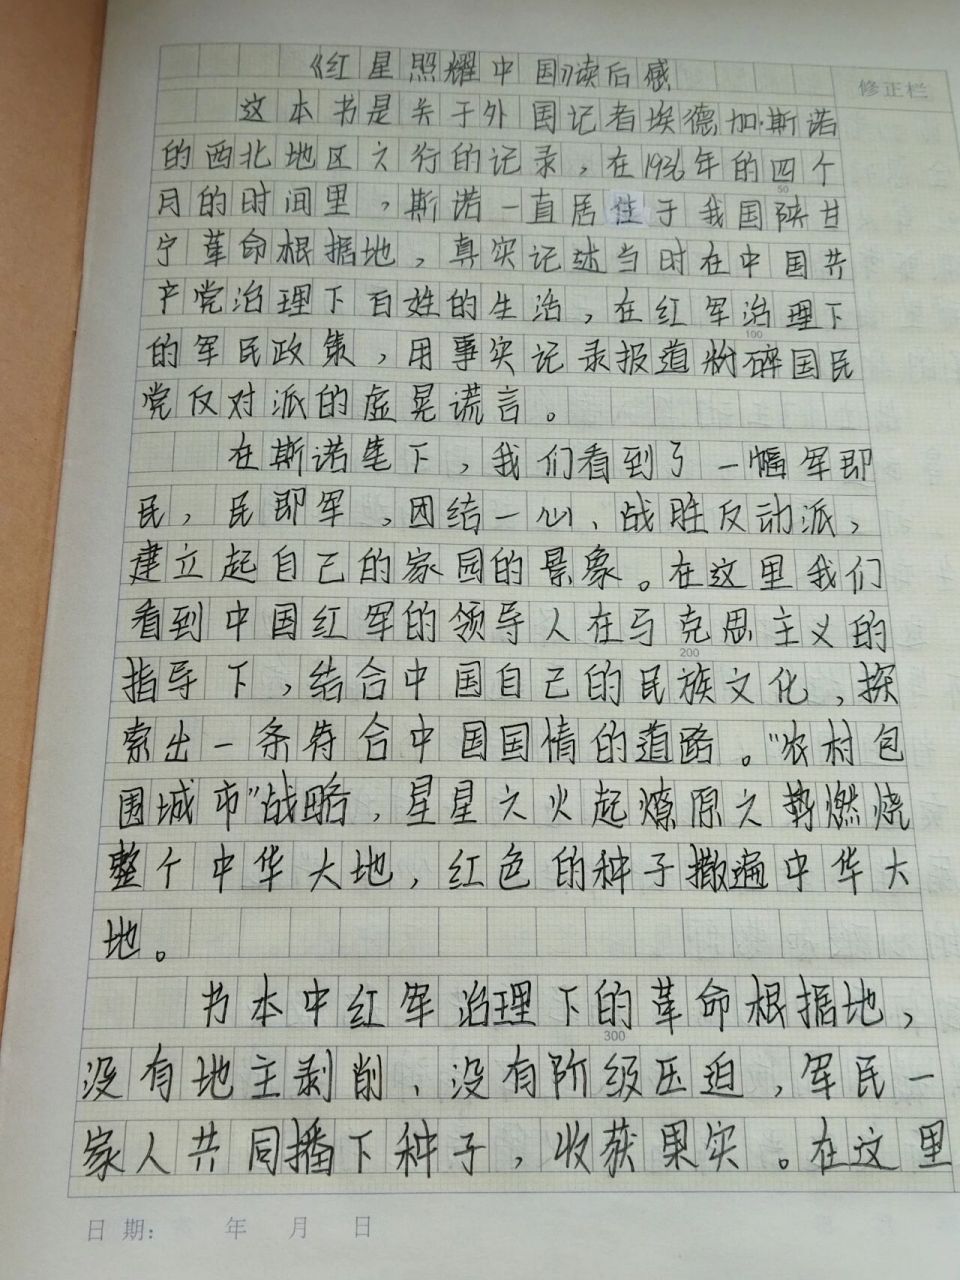 《红星照耀中国》读后感
修正栏
这本书是关于外国记者埃德加·斯诺
的西北地区之行的记录，在1936年的四个
50
月的时间里，斯诺一直居住于我国陕甘
宁革命根据地，真实记述当时在中国共
产党治理下百姓的生活，在红军治理下
100
的军民政策，用事实记录报道粉碎国民
党反对派的虚晃谎言。
在斯诺笔下，我们看到了一幅军即
民，民即军，团结一心、战胜反动派，
建立起自己的家园的景象。在这里我们
看到中国红军的领导人在马克思主义的
200
指导下，结合中国自己的民族文化，探
索出一条符合中国国情的道路。"农村包
围城市"战略，星星之火起燎原之势燃烧
整个中华大地，红色的种子撒遍中华大
地。
书本中红军治理下的革命根据地，
300
没有地主剥削、没有阶级压迫，军民一
家人共同播下种子，收获果实。在这里
日期： 年 月 日